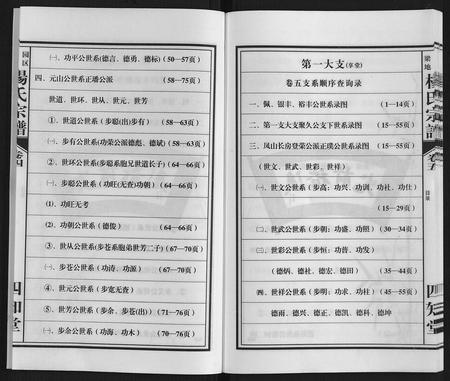 园区
杨氏宗谱
卷四
四知堂
㈠、功平公世系(德言、德勇、德标)(50—57页)
四、元山公世系正璠公派 (58—75页)
世道、世环、世从、世元、世芳
①、世道公世系(步聪(出)步有) (58—63页)
㈠、步有公世系(功荣公派德彪、德斌) (58—63页)
②、世环公世系(步聪系胞兄世道长子)(64—66页)
㈠、步聪公世系(功旺(无查)功朝) (64—66页)
⑴、功旺无考
⑵、功朝公世系(德俊) (64—66页)
③、世从公世系(步苍系胞弟世芳二子)(67—70页)
㈠、步苍公世系(功涛、功源) (67—70页)
④、世元公世系(步宽无查)
⑤、世芳公世系(步余、步苍(出)) (71—76页)
㈠、步余公世系(功海、功木) (70—76页)
第一大支(享堂)
卷五支系顺序查询录
一、佩、银丰、裕丰公世系录图 (1—14页)
二、第一大支聚久公支下世系录图 (15—55页)
三、凤山长房登荣公派正璞公世系录图 (15—55页)
(世文、世武、世彩、世祥)
㈠、世文公世系(步高:功兴、功训、功社、功仕)
(15—29页)
㈡、世武公世系(步朝:功盛、功照) (30—34页)
㈢、世彩公世系(步恒:功普、功发)
(德炳、德社、德宏、德田) (35—44页)
㈣、世祥公世系(步明:功求、功柱) (45—55页)
德甫、德兴、德正、德凯、德科、德坤
梁地
杨氏宗谱
卷五
目录
四知堂